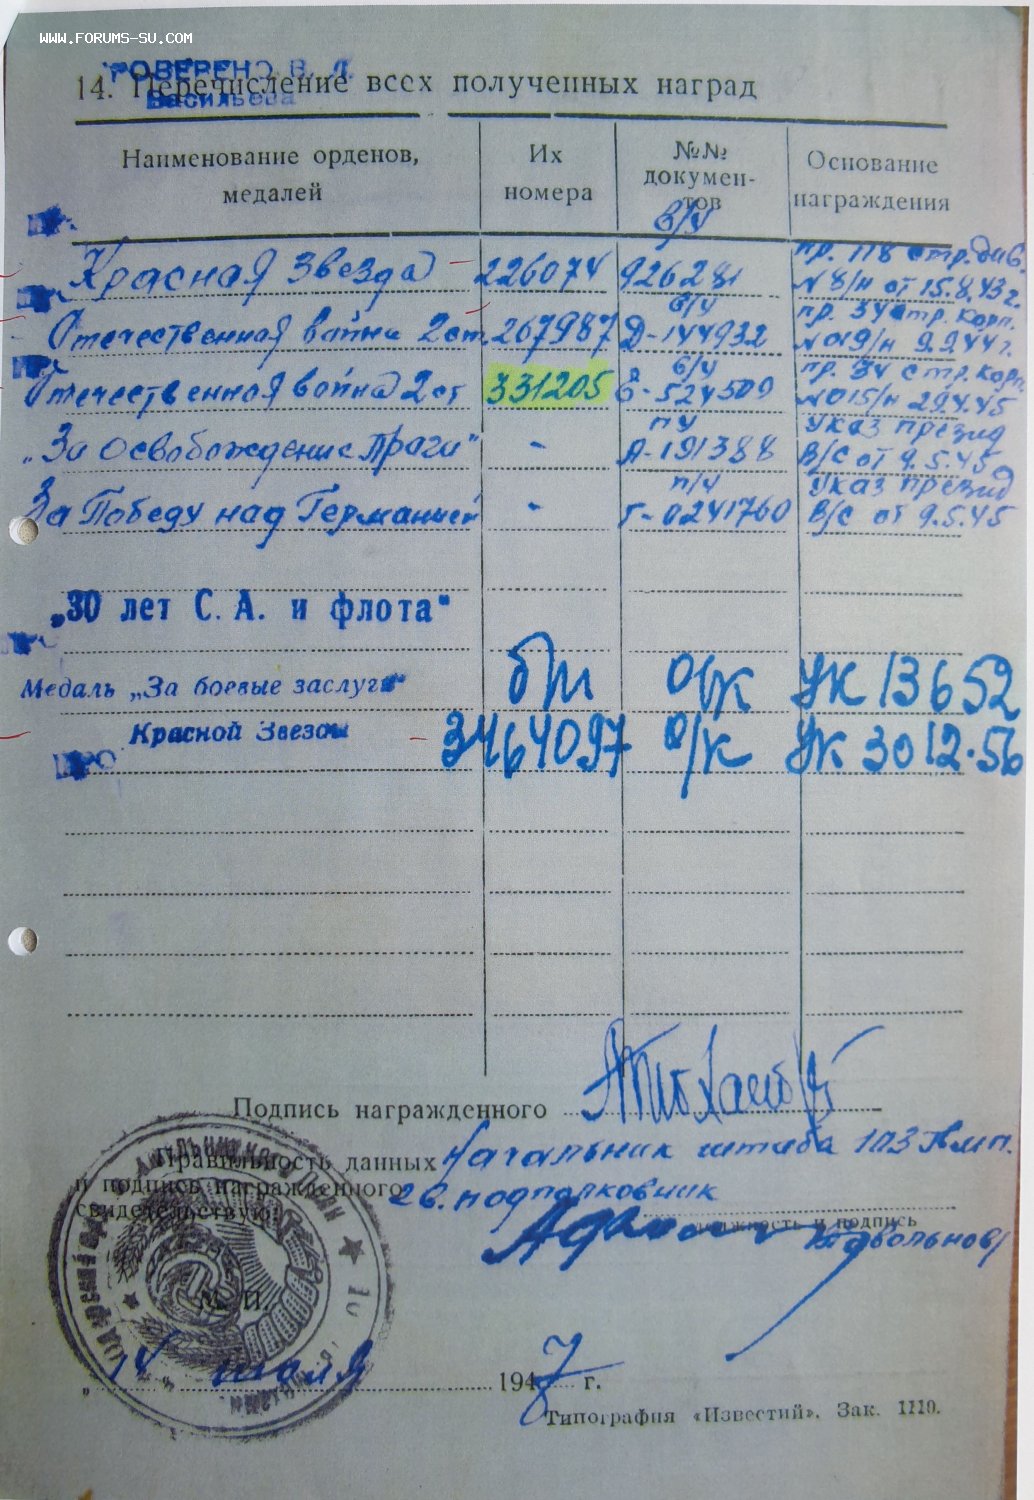 WWW.FORUMS-SU.COM
РОВЕРЕНО В. Л.
Васильева
14. Перечисление всех полученных наград
Наименование орденов, медалей
Их номера
№№ документов
Основание награждения
в/ч
Красная Звезда 226074 926281 пр. 118 стр. див. № 8/н от 15.8.43 г.
Отечественная война 2 ст. 267987 в/ч Д-144932 пр. 34 стр. корп. № 019/н 9.9.44 г.
Отечественная война 2 ст 331205 в/ч Е-524509 пр. 34 стр. корп № 015/н 29.4.45
„За освобождение Праги" - пу А-191388 Указ презид В/С от 9.5.45
За Победу над Германией - п/ч Г-0241760 Указ презид В/С от 9.5.45
„30 лет С. А. и флота"
Медаль „За боевые заслуги" б/н о/к УК 13652
Красной Звезды 3464097 о/к УК 3012.56
Подпись награжденного
Правильность данных Начальник штаба 103
и подпись награжденного гв. подполковник
свидетельствую:
должность и подпись
М. П.
„14" июля 1947 г.
Типография «Известий». Зак. 1110.